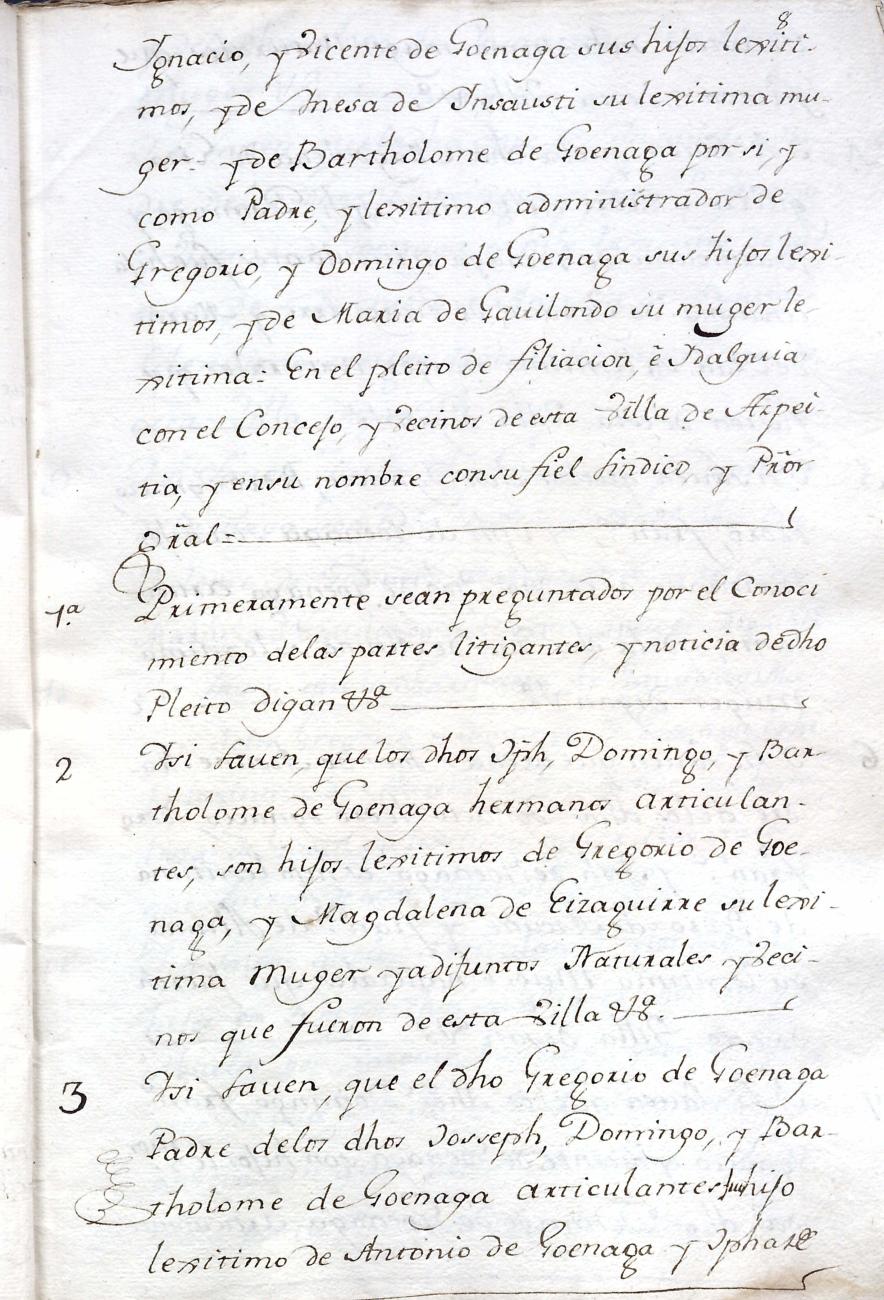 8
Ignacio, y Vicente de Goenaga sus hijos lexiti-
mos, y de Inesa de Insausti su lexitima mu-
ger- y de Bartholome de Goenaga por si, y
como Padre, y lexitimo administrador de
Gregorio, y Domingo de Goenaga sus hijos lexi-
timos, y de Maria de Gavilondo su muger le-
xitima: En el pleito de filiacion, è Idalguia
con el Concejo, y Vecinos de esta Villa de Azpei-
tia, y en su nombre con su fiel sindico, y Prõr
gñral=
1.ª Primeramente sean preguntados por el Conoci
miento de las partes litigantes, y noticia de dho
Pleito digan &ª
2 Itt si saven, que los dhos Jph, Domingo, y Bar-
tholome de Goenaga hermanos articulan-
tes, son hijos lexitimos de Gregorio de Goe-
naga, y Magdalena de Eizaguirre su lexi-
tima Muger ya difuntos Naturales y Veci-
nos que fueron de esta Villa &ª.
3 Itt si saven, que el dho Gregorio de Goenaga
Padre de los dhos Josseph, Domingo, y Bar-
tholome de Goenaga articulantes fue hijo
lexitimo de Antonio de Goenaga y Jpha de